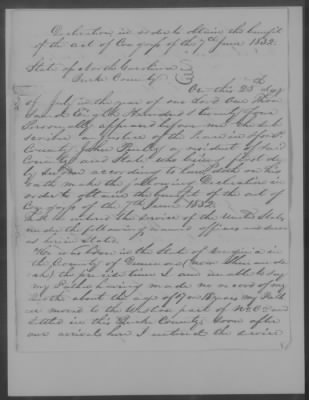 Declaration in order to obtain the benefit
of the act of Congress of the 7th June 1832.
State of North Carolina
Burke County
On this 25th day
of July in the year of our Lord One Thou
sand Eight Hundred & twenty four
Personally appeared before me
Justice of the Peace in & for sd
County John a resident of said
County and State who being first du
ly sworn according to Law doth on his
oath make the following Declaration in
order to obtain the benefit of the act of
Congress of the 7th June 1832.
entered the service of the United States
under the following named officers and served
as herein Stated.
He was born in the State of Virginia in
the County of (now Shenando
ah) the precise time I am unable to say
my Father having made no record of my
Birth about the age of 17 or 18 years my Fath
er moved to the Western part of N. C. and
settled in this Burke County. Soon after
our arrival here I entered the service